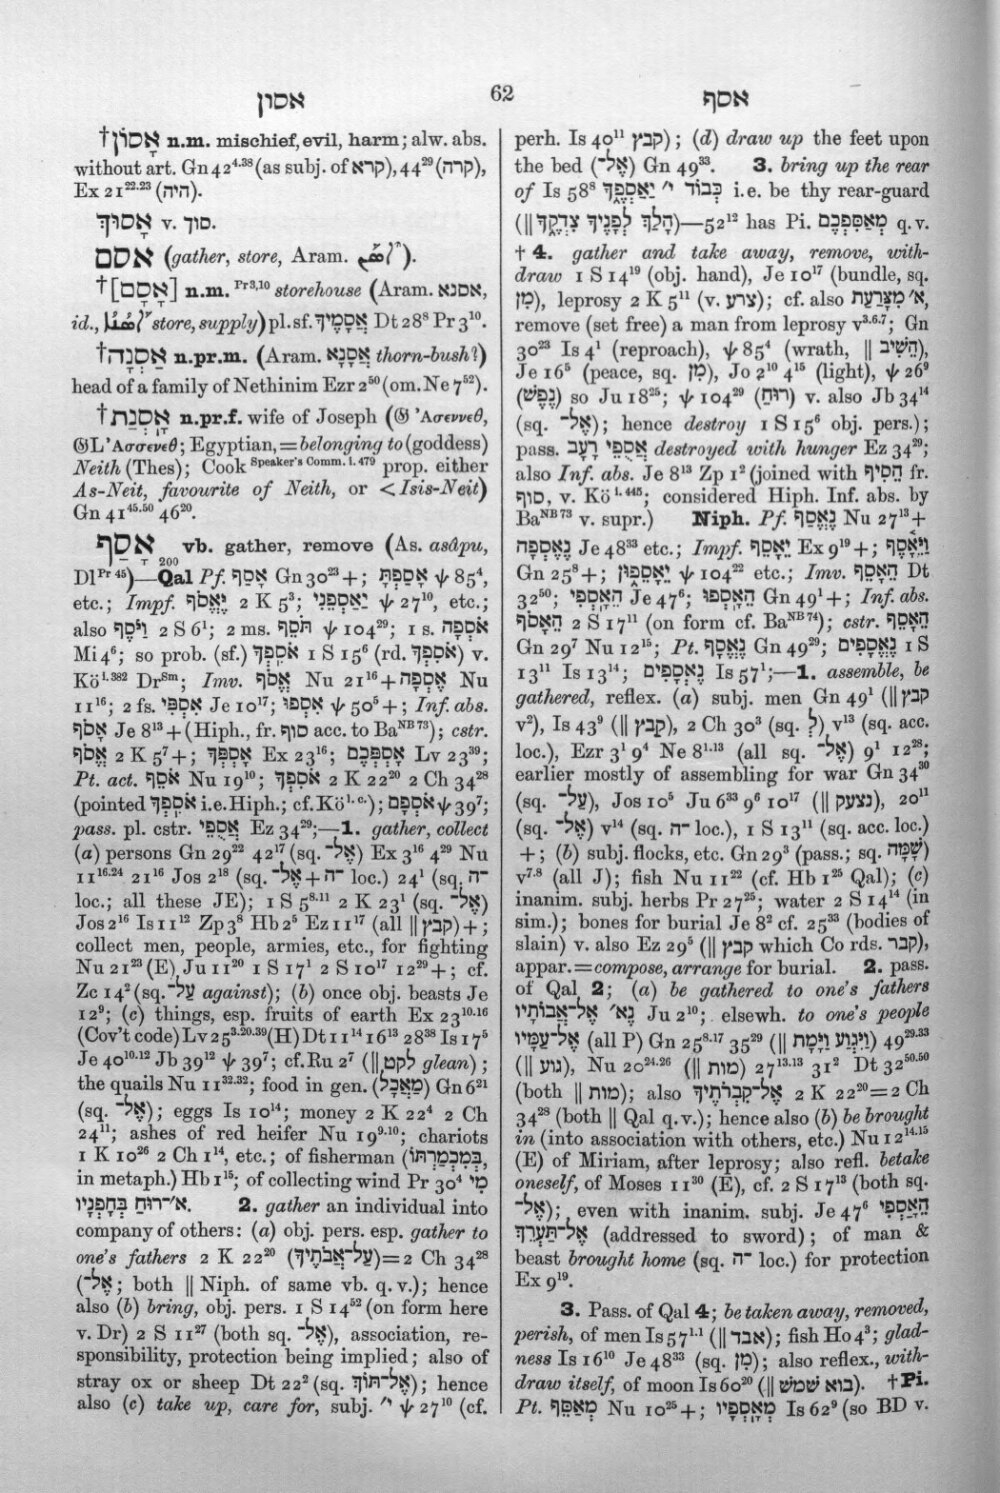 אסון
62
אסף
†אָסוֹן n.m. mischief, evil, harm; alw. abs.
without art. Gn 42⁴·³⁸ (as subj. of קרא), 44²⁹ (קרה),
Ex 21²²·²³ (היה).
אָסוּךְ v. סוך.
אסם (gather, store, Aram. ).
†[אָסָם] n.m. Pr 3,10 storehouse (Aram. אסנא,
id., store, supply) pl. sf. אֲסָמֶיךָ Dt 28⁸ Pr 3¹⁰.
†אַסְנָה n.pr.m. (Aram. אֲסָנָא thorn-bush?)
head of a family of Nethinim Ezr 2⁵⁰ (om. Ne 7⁵²).
†אָסְנַת n.pr.f. wife of Joseph (𝔊 Ἀσεννεθ,
𝔊L Ἀσσενεθ; Egyptian, = belonging to (goddess)
Neith (Thes); Cook Speaker's Comm. i. 479 prop. either
As-Neit, favourite of Neith, or < Isis-Neit)
Gn 41⁴⁵·⁵⁰ 46²⁰.
אָסַף 200 vb. gather, remove (As. asâpu,
Dl Pr 45)—Qal Pf. אָסַף Gn 30²³ +; אָסַפְתָּ ψ 85⁴,
etc.; Impf. יֶאֱסֹף 2 K 5³; יַאַסְפֵנִי ψ 27¹⁰, etc.;
also וַיֹּסֶף 2 S 6¹; 2 ms. תֹּסֵף ψ 104²⁹; 1 s. אֹסְפָה
Mi 4⁶; so prob. (sf.) אֹסִפְךָ 1 S 15⁶ (rd. אֹסְפְךָ) v.
Kö i. 382 Dr Sm; Imv. אֱסֹף Nu 21¹⁶ + אֶסְפָה Nu
11¹⁶; 2 fs. אִסְפִּי Je 10¹⁷; אִסְפוּ ψ 50⁵ +; Inf. abs.
אָסֹף Je 8¹³ + (Hiph., fr. סוף acc. to Ba NB 73); cstr.
אֱסֹף 2 K 5⁷ +; אָסְפְּךָ Ex 23¹⁶; אָסְפְּכֶם Lv 23³⁹;
Pt. act. אֹסֵף Nu 19¹⁰; אֹסִפְךָ 2 K 22²⁰ 2 Ch 34²⁸
(pointed אֹסִפְךָ i.e. Hiph.; cf. Kö l. c.); אֹסְפָם ψ 39⁷;
pass. pl. cstr. אֲסֻפֵי Ez 34²⁹;—1. gather, collect
(a) persons Gn 29²² 42¹⁷ (sq. אֶל־) Ex 3¹⁶ 4²⁹ Nu
11¹⁶·²⁴ 21¹⁶ Jos 2¹⁸ (sq. אֶל־ + ־ה loc.) 24¹ (sq. ־ה
loc.; all these JE); 1 S 5⁸·¹¹ 2 K 23¹ (sq. אֶל־)
Jos 2¹⁶ Is 11¹² Zp 3⁸ Hb 2⁵ Ez 11¹⁷ (all ∥ קבץ) +;
collect men, people, armies, etc., for fighting
Nu 21²³ (E) Ju 11²⁰ 1 S 17¹ 2 S 10¹⁷ 12²⁹ +; cf.
Zc 14² (sq. עַל־ against); (b) once obj. beasts Je
12⁹; (c) things, esp. fruits of earth Ex 23¹⁰·¹⁶
(Cov't code) Lv 25³·²⁰·³⁹ (H) Dt 11¹⁴ 16¹³ 28³⁸ Is 17⁵
Je 40¹⁰·¹² Jb 39¹² ψ 39⁷; cf. Ru 2⁷ (∥ לקט glean);
the quails Nu 11³²·³²; food in gen. (מַאֲכָל) Gn 6²¹
(sq. אֶל־); eggs Is 10¹⁴; money 2 K 22⁴ 2 Ch
24¹¹; ashes of red heifer Nu 19⁹·¹⁰; chariots
1 K 10²⁶ 2 Ch 1¹⁴, etc.; of fisherman (בְּמִכְמַרְתּוֹ,
in metaph.) Hb 1¹⁵; of collecting wind Pr 30⁴ מִי
א׳־רוּחַ בְּחָפְנָיו. 2. gather an individual into
company of others: (a) obj. pers. esp. gather to
one's fathers 2 K 22²⁰ (עַל־אֲבֹתֶיךָ) = 2 Ch 34²⁸
(אֶל־; both ∥ Niph. of same vb. q.v.); hence
also (b) bring, obj. pers. 1 S 14⁵² (on form here
v. Dr) 2 S 11²⁷ (both sq. אֶל־), association, re-
sponsibility, protection being implied; also of
stray ox or sheep Dt 22² (sq. אֶל־תּוֹךְ); hence
also (c) take up, care for, subj. י״ ψ 27¹⁰ (cf.
perh. Is 40¹¹ קבץ); (d) draw up the feet upon
the bed (אֶל־) Gn 49³³. 3. bring up the rear
of Is 58⁸ כְּבוֹד י״ יַאַסְפֶךָ i.e. be thy rear-guard
(∥ הָלַךְ לְפָנֶיךָ צִדְקֶךָ)—52¹² has Pi. מְאַסִּפְכֶם q.v.
† 4. gather and take away, remove, with-
draw 1 S 14¹⁹ (obj. hand), Je 10¹⁷ (bundle, sq.
מִן), leprosy 2 K 5¹¹ (v. צרע); cf. also א׳ מִצָּרַעַת,
remove (set free) a man from leprosy v³·⁶·⁷; Gn
30²³ Is 4¹ (reproach), ψ 85⁴ (wrath, ∥ הֵשִׁיב),
Je 16⁵ (peace, sq. מִן), Jo 2¹⁰ 4¹⁵ (light), ψ 26⁹
(נֶפֶשׁ) so Ju 18²⁵; ψ 104²⁹ (רוּחַ) v. also Jb 34¹⁴
(sq. אֶל־); hence destroy 1 S 15⁶ obj. pers.);
pass. אֲסֻפֵי רָעָב destroyed with hunger Ez 34²⁹;
also Inf. abs. Je 8¹³ Zp 1² (joined with הֵסִיף fr.
סוף, v. Kö i. 445; considered Hiph. Inf. abs. by
Ba NB 73 v. supr.) Niph. Pf. נֶאֱסַף Nu 27¹³ +
נֶאֶסְפָה Je 48³³ etc.; Impf. יֵאָסֵף Ex 9¹⁹ +; וַיֵּאָסֶף
Gn 25⁸ +; יֵאָסֵפוּן ψ 104²² etc.; Imv. הֵאָסֵף Dt
32⁵⁰; הֵאָסְפִי Je 47⁶; הֵאָסְפוּ Gn 49¹ +; Inf. abs.
הֵאָסֹף 2 S 17¹¹ (on form cf. Ba NB 74); cstr. הֵאָסֵף
Gn 29⁷ Nu 12¹⁵; Pt. נֶאֱסָף Gn 49²⁹; נֶאֱסָפִים 1 S
13¹¹ Is 13¹⁴; נֶאֱסָפִים Is 57¹;—1. assemble, be
gathered, reflex. (a) subj. men Gn 49¹ (∥ קבץ
v²), Is 43⁹ (∥ קבץ), 2 Ch 30³ (sq. לְ) v¹³ (sq. acc.
loc.), Ezr 3¹ 9⁴ Ne 8¹·¹³ (all sq. אֶל־) 9¹ 12²⁸;
earlier mostly of assembling for war Gn 34³⁰
(sq. עַל־), Jos 10⁵ Ju 6³³ 9⁶ 10¹⁷ (∥ נצעק), 20¹¹
(sq. אֶל־) v¹⁴ (sq. ־ה loc.), 1 S 13¹¹ (sq. acc. loc.)
+; (b) subj. flocks, etc. Gn 29³ (pass.; sq. שָׁמָּה)
v⁷·⁸ (all J); fish Nu 11²² (cf. Hb 1²⁵ Qal); (c)
inanim. subj. herbs Pr 27²⁵; water 2 S 14¹⁴ (in
sim.); bones for burial Je 8² cf. 25³³ (bodies of
slain) v. also Ez 29⁵ (∥ קבץ which Co rds. קבר),
appar. = compose, arrange for burial. 2. pass.
of Qal 2; (a) be gathered to one's fathers
נֶא׳ אֶל־אֲבוֹתָיו Ju 2¹⁰; elsewh. to one's people
אֶל־עַמָּיו (all P) Gn 25⁸·¹⁷ 35²⁹ (∥ וַיִּגְוַע וַיָּמָת) 49²⁹·³³
(∥ גוע), Nu 20²⁴·²⁶ (∥ מות) 27¹³·¹³ 31² Dt 32⁵⁰·⁵⁰
(both ∥ מות); also אֶל־קִבְרֹתֶיךָ 2 K 22²⁰ = 2 Ch
34²⁸ (both ∥ Qal q.v.); hence also (b) be brought
in (into association with others, etc.) Nu 12¹⁴·¹⁵
(E) of Miriam, after leprosy; also refl. betake
oneself, of Moses 11³⁰ (E), cf. 2 S 17¹³ (both sq.
אֶל־); even with inanim. subj. Je 47⁶ הֵאָסְפִי
אֶל־תַּעְרֵךְ (addressed to sword); of man &
beast brought home (sq. ־ה loc.) for protection
Ex 9¹⁹.
3. Pass. of Qal 4; be taken away, removed,
perish, of men Is 57¹·¹ (∥ אבד); fish Ho 4³; glad-
ness Is 16¹⁰ Je 48³³ (sq. מִן); also reflex., with-
draw itself, of moon Is 60²⁰ (∥ בוא שמש). † Pi.
Pt. מְאַסֵּף Nu 10²⁵ +; מְאַסְפָיו Is 62⁹ (so BD v.